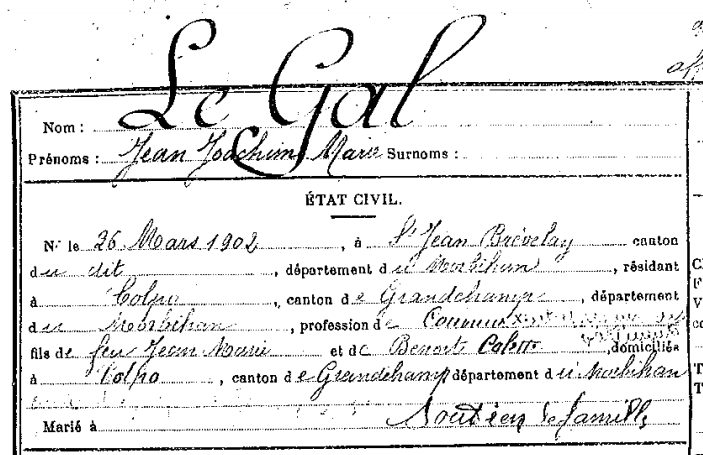 Le Gal
Nom :
Prénoms : Jean Joachim Marie Surnoms :
ÉTAT CIVIL.
Né le 26 Mars 1902, à St Jean Brévelay canton
du dit, département du Morbihan, résidant
à Colpo, canton de Grandchamp, département
du Morbihan, profession de
fils de feu Jean Marie et de Benoit Colette domiciliés
à Colpo, canton de Grandchamp département du Morbihan
Marié à Soutien de famille